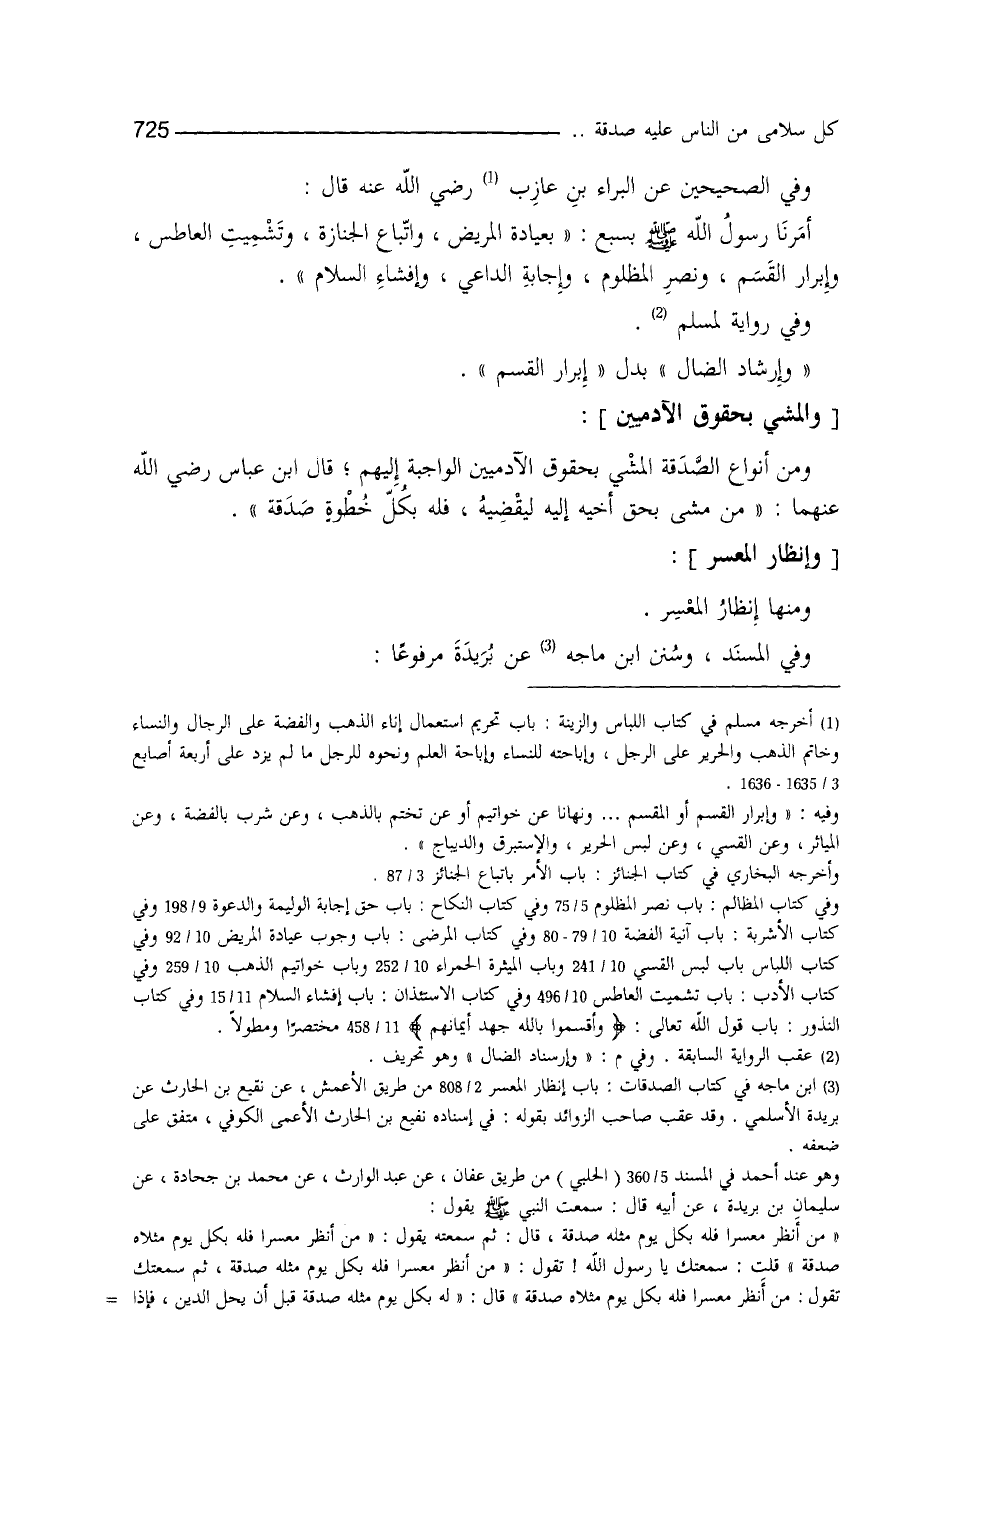 كل سلامى من الناس عليه صدقة .. 725
وفي الصحيحين عن البراء بنِ عازِب (1) رضي اللّه عنه قال :
أمَرنَا رسولُ اللّه ﷺ بسبع : « بعيادة المريض ، واتّباع الجنازة ، وتَشْمِيتِ العاطس ،
وإبرار القَسَم ، ونصرِ المظلوم ، وإجابةِ الداعي ، وإفشاءِ السلام » .
وفي رواية لمسلم (2) .
« وإرشاد الضال » بدل « إبرار القسم » .
[ والمشي بحقوق الآدميين ] :
ومن أنواع الصَّدَقة المشْي بحقوق الآدميين الواجبة إليهم ؛ قال ابن عباس رضي اللّه
عنهما : « من مشى بحق أخيه إليه ليقْضِيهُ ، فله بكُلّ خُطْوةٍ صَدَقة » .
[ وإنظار المعسر ] :
ومنها إنظارُ المعْسِر .
وفي المسنَد ، وسُنن ابن ماجه (3) عن بُرَيدَةَ مرفوعًا :
(1) أخرجه مسلم في كتاب اللباس والزينة : باب تحريم استعمال إناء الذهب والفضة على الرجال والنساء
وخاتم الذهب والحرير على الرجل ، وإباحته للنساء وإباحة العلم ونحوه للرجل ما لم يزد على أربعة أصابع
3 / 1635 - 1636 .
وفيه : « وإبرار القسم أو المقسم ... ونهانا عن خواتيم أو عن تختم بالذهب ، وعن شرب بالفضة ، وعن
المياثر ، وعن القسي ، وعن لبس الحرير ، والإستبرق والديباج » .
وأخرجه البخاري في كتاب الجنائز : باب الأمر باتباع الجنائز 3 / 87 .
وفي كتاب المظالم : باب نصر المظلوم 5 / 75 وفي كتاب النكاح : باب حق إجابة الوليمة والدعوة 9 / 198 وفي
كتاب الأشربة : باب آنية الفضة 10 / 79 - 80 وفي كتاب المرضى : باب وجوب عيادة المريض 10 / 92 وفي
كتاب اللباس باب لبس القسي 10 / 241 وباب الميثرة الحمراء 10 / 252 وباب خواتيم الذهب 10 / 259 وفي
كتاب الأدب : باب تشميت العاطس 10 / 496 وفي كتاب الاستئذان : باب إفشاء السلام 11 / 15 وفي كتاب
النذور : باب قول اللّه تعالى : ﴿ وأقسموا بالله جهد أيمانهم ﴾ 11 / 458 مختصرًا ومطولاً .
(2) عقب الرواية السابقة . وفي م : « وإرسناد الضال » وهو تحريف .
(3) ابن ماجه في كتاب الصدقات : باب إنظار المعسر 2 / 808 من طريق الأعمش ، عن نقيع بن الحارث عن
بريدة الأسلمي . وقد عقب صاحب الزوائد بقوله : في إسناده نفيع بن الحارث الأعمى الكوفي ، متفق على
ضعفه .
وهو عند أحمد في المسند 5 / 360 ( الحلبي ) من طريق عفان ، عن عبد الوارث ، عن محمد بن جحادة ، عن
سليمان بن بريدة ، عن أبيه قال : سمعت النبي ﷺ يقول :
« من أنظر معسرا فله بكل يوم مثله صدقة ، قال : ثم سمعته يقول : « من أنظر معسرا فله بكل يوم مثلاه
صدقة » قلت : سمعتك يا رسول اللّه ! تقول : « من أنظر معسرا فله بكل يوم مثله صدقة ، ثم سمعتك
تقول : من أَنظر معسرا فله بكل يوم مثلاه صدقة » قال : « له بكل يوم مثله صدقة قبل أن يحل الدين ، فإذا =